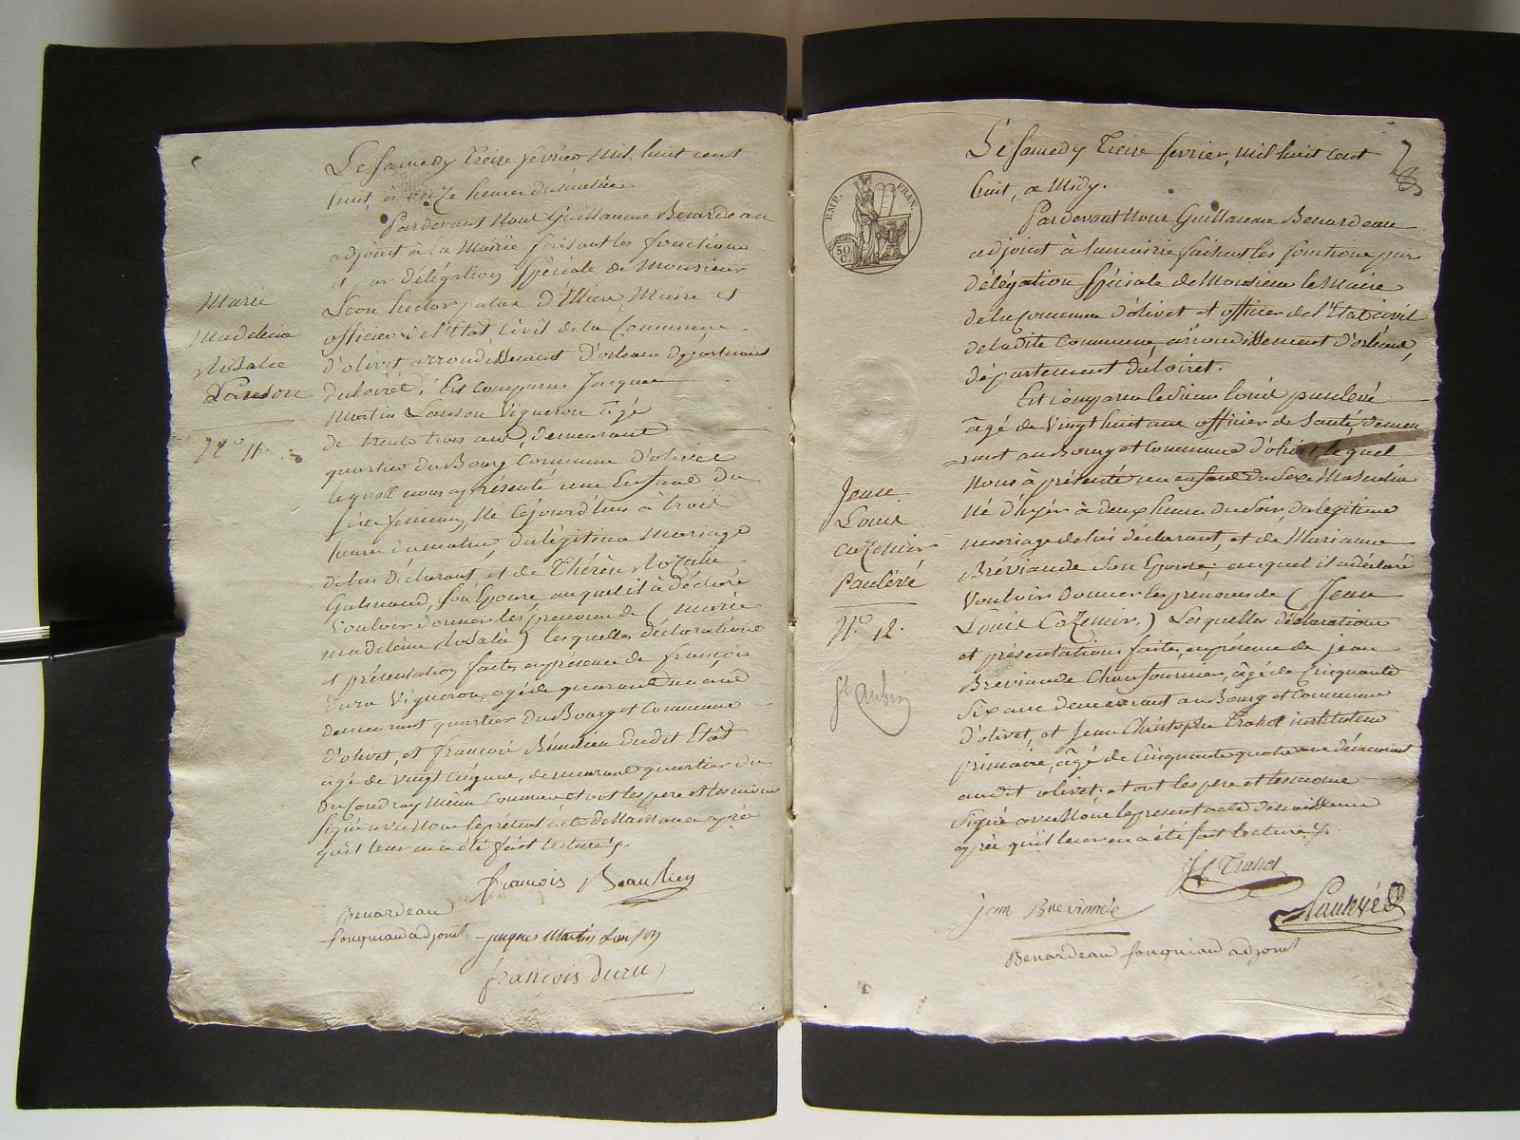 Le Samedy Treize fevrier mil huit cent
huit, à onze heures du matin
Pardevant Nous Guillaume Benardeau
adjoint à la Mairie faisant les fonctions
et par délégation Spéciale de Monsieur
Maire et
officier de l'Etat Civil de la Commune
d'olivet arrondissement d'orleans département
du loiret. Est comparu Jacques
Martin Lanson Vigneron âgé
de trente trois ans, demeurant
quartier du Bourg Commune d'olivet
lequel nous a présenté une Enfant du
Sexe feminin, Né cejourd'huy à trois
heures du matin, du légitime Mariage
de lui déclarant, et de Thérèse Rozalie
son Epouse auquel il à déclaré
Vouloir donner les prénoms de (Marie
madeleine Rosalie) lesquelles déclarations
et présentation faites en présence de françois
Duru Vigneron, agé de quarante un ans
demeurant quartier du Bourg et Commune
d'olivet, et françois dudit Etat
agé de vingt cinq ans, demeurant quartier du
même Commune et ont les père et temoins
Signé avec Nous le présent acte de Naissance après
qu'il leur en a été fait lecture.
Marie
Madeleine
Rosalie
Lanson
N.º 11.
françois Beaulieu
Benardeau
adjoint
jacques Martin Lanson
françois duru
Le Samedy Treize fevrier, mil huit cent
huit, a Midy.
EMP. FRAN.
50
C.
Pardevant Nous Guillaume Benardeau
adjoint à la mairie faisant les fonctions par
délégation Spéciale de Monsieur le Maire
de la Commune d'olivet et officier de l'Etat civil
de ladite Commune, arrondissement d'orléans,
département du loiret.
Est comparu le Sieur Louis Paulévé
âgé de Vingt huit ans officier de Santé, demeu
rant au Bourg et Commune d'olivet, lequel
Nous à présenté un enfant du Sexe Masculin
Né d'hyer à deux heures du Soir, du légitime
mariage de lui déclarant, et de Marianne
Bréviande Son Epouse; auquel il a déclaré
Vouloir donner les prénoms de (Jean
Louis Cazemir.) Lesquelles déclarations
et présentations faites, en présence de jean
Bréviande Chaufournier, âgé de Cinquante
Six ans demeurant au Bourg et Commune
d'olivet, et Jean Christophe Trohot instituteur
primaire, âgé de Cinquante quatre ans demeurant
audit olivet; et ont les pere et temoins
Signé avec Nous le present acte de naissance
après qu'il leur en a été fait lecture.
Jean
Louis
Cazemir
Paulévé
N.º 12.
St. Aubin
JC Trohot
jean Breviande
Paulévé
Benardeau adjoint